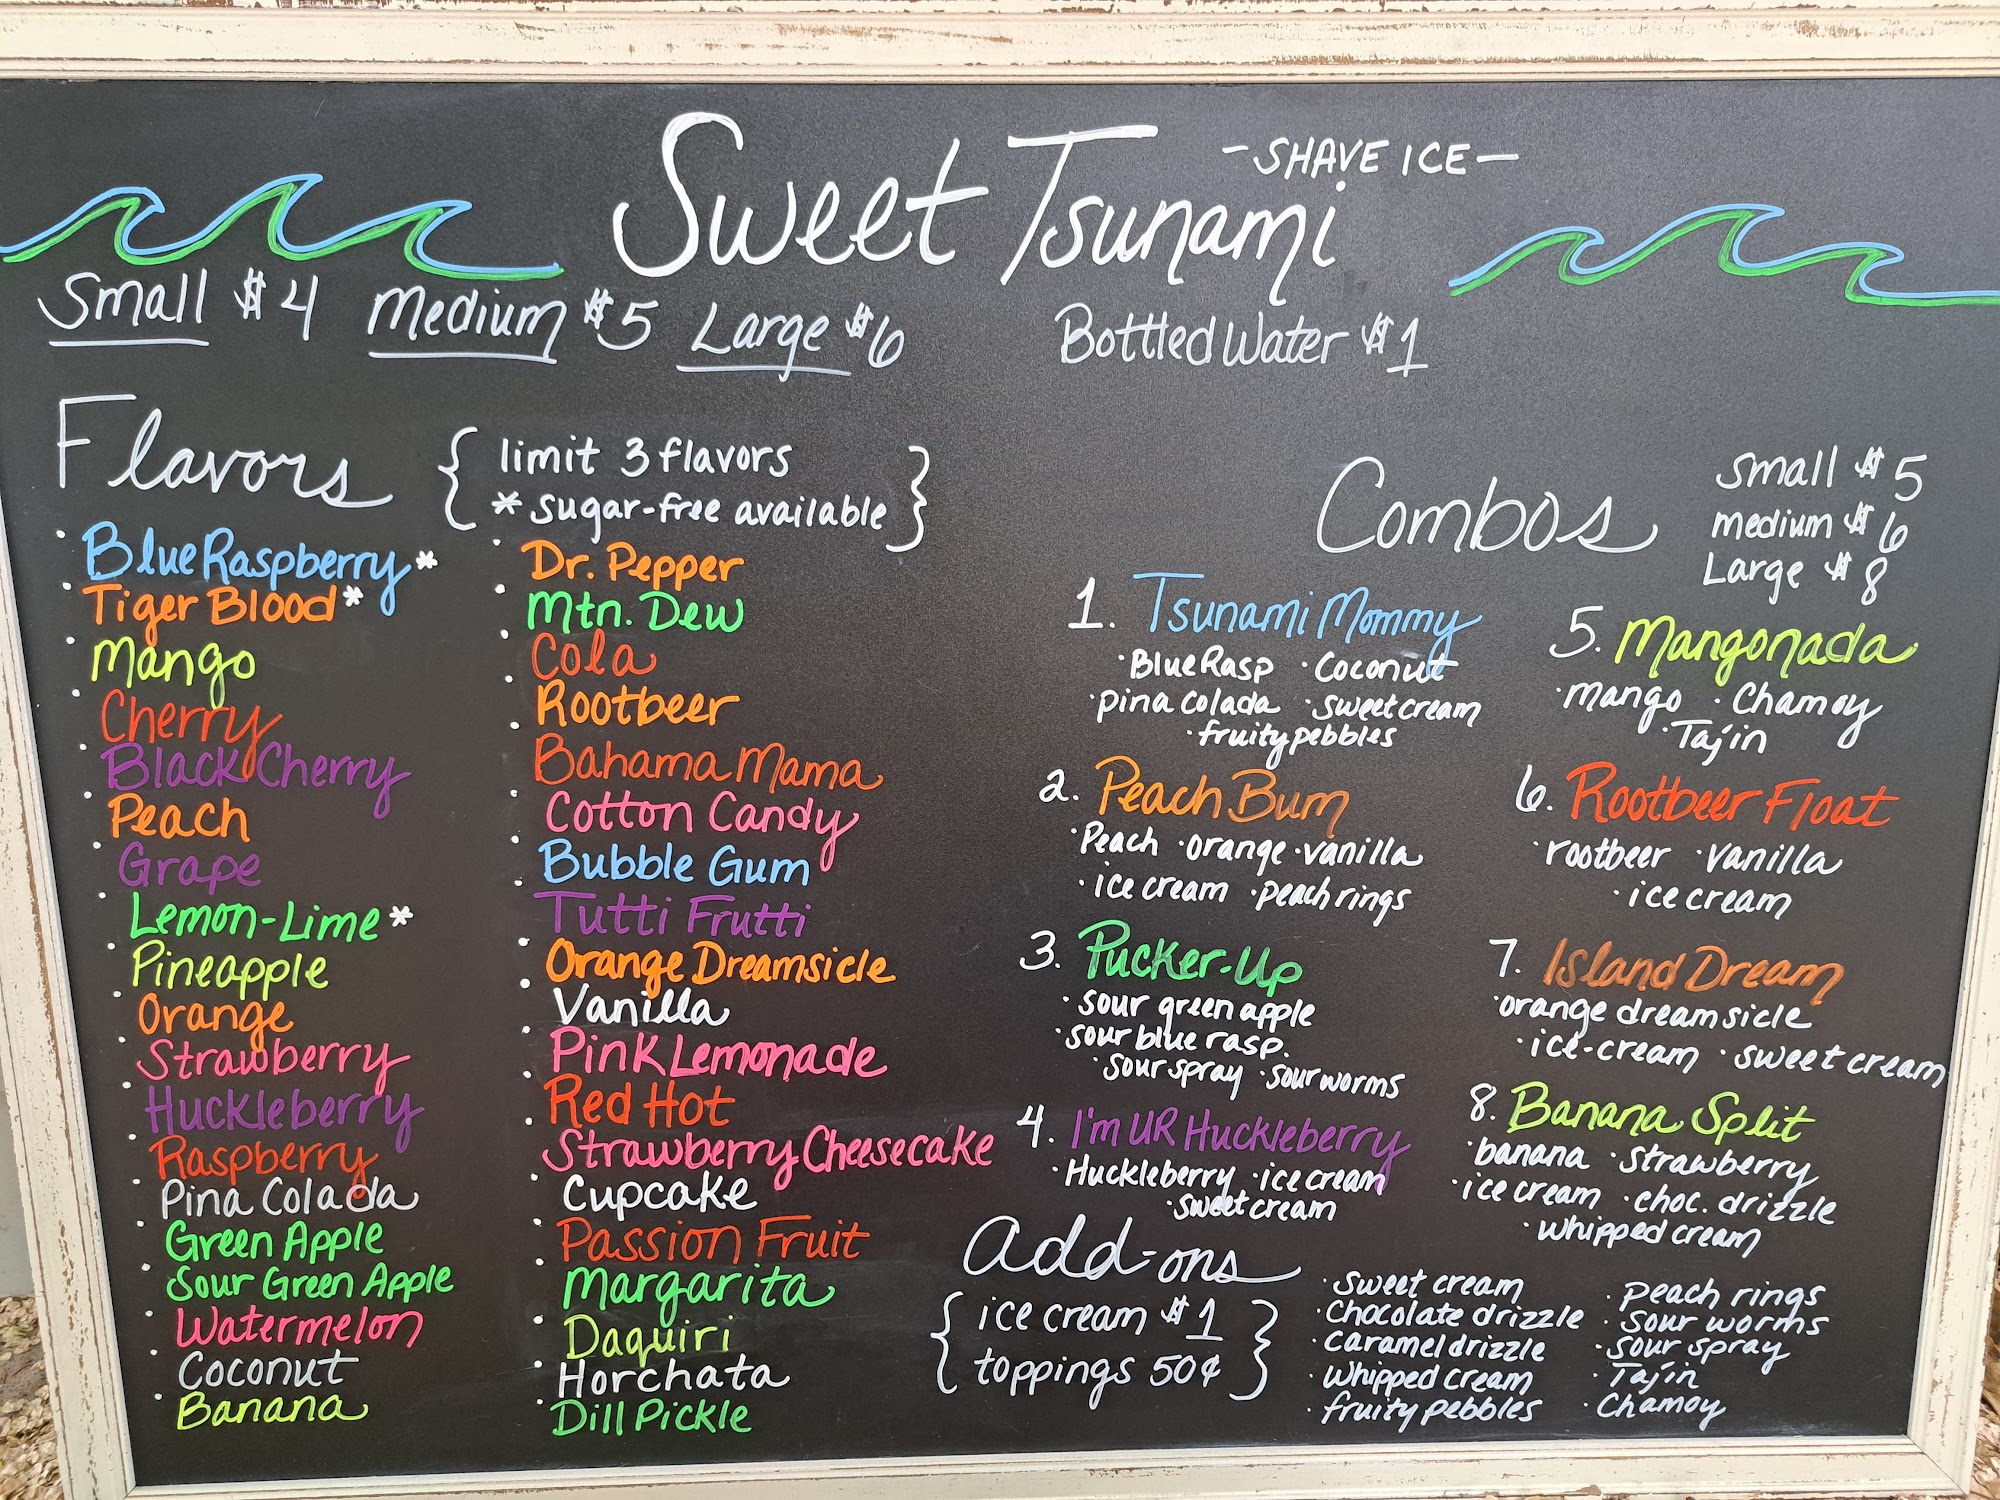 Sweet Tsunami
-SHAVE ICE-
Small $4 Medium $5 Large $6
Bottled Water $1
Flavors
{ limit 3 flavors
* sugar-free available }
· Blue Raspberry *
· Tiger Blood *
· Mango
· Cherry
· Black Cherry
· Peach
· Grape
· Lemon-Lime *
· Pineapple
· Orange
· Strawberry
· Huckleberry
· Raspberry
· Pina Colada
· Green Apple
· Sour Green Apple
· Watermelon
· Coconut
· Banana
· Dr. Pepper
· Mtn. Dew
· Cola
· Rootbeer
· Bahama Mama
· Cotton Candy
· Bubble Gum
· Tutti Frutti
· Orange Dreamsicle
· Vanilla
· Pink Lemonade
· Red Hot
· Strawberry Cheesecake
· Cupcake
· Passion Fruit
· Margarita
· Daquiri
· Horchata
· Dill Pickle
Combos
Small $5
medium $6
Large $8
1. Tsunami Mommy
· Blue Rasp · Coconut
· pina Colada · sweet cream
· fruity pebbles
2. Peach Bum
· Peach · orange · vanilla
· ice cream · peach rings
3. Pucker-Up
· sour green apple
· sour blue rasp.
· sour spray · sour worms
4. I'm UR Huckleberry
· Huckleberry · ice cream
· sweet cream
5. Mangonada
· mango · Chamoy
· Tajin
6. Rootbeer Float
· rootbeer · vanilla
· ice cream
7. Island Dream
· orange dreamsicle
· ice-cream · sweet cream
8. Banana Split
· banana · strawberry
· ice cream · choc. drizzle
· whipped cream
Add-ons
{ ice cream $1 }
{ toppings 50¢ }
· sweet cream
· Chocolate drizzle
· Caramel drizzle
· whipped cream
· fruity pebbles
· Peach rings
· sour worms
· sour spray
· Tajin
· Chamoy